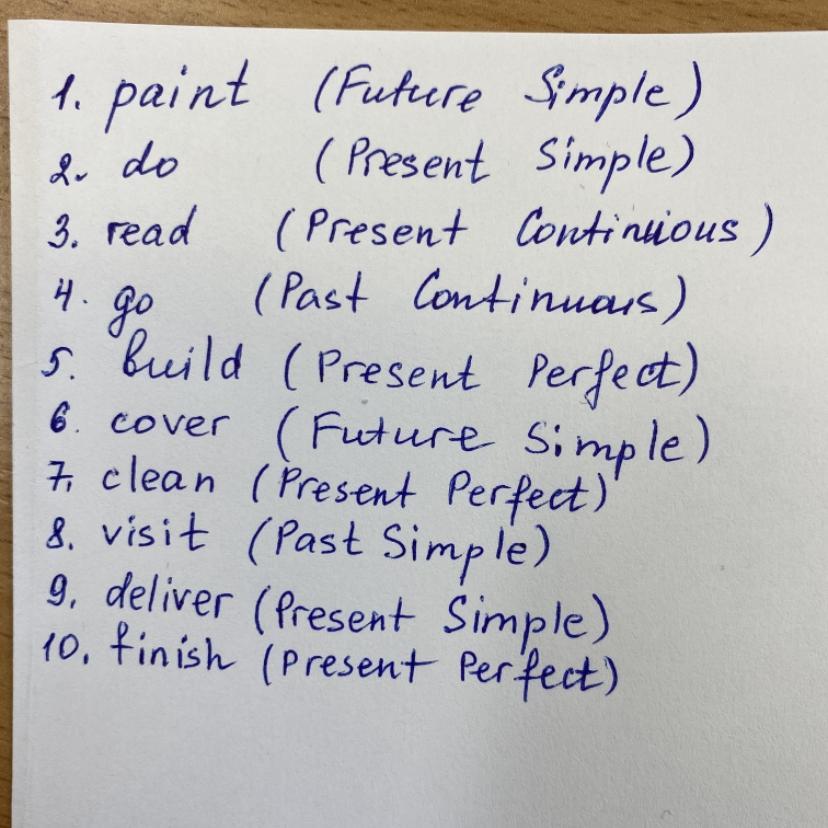 1. paint (Future Simple)
2. do (Present Simple)
3. read (Present Continuious)
4. go (Past Continuous)
5. build (Present Perfect)
6. cover (Future Simple)
7. clean (Present Perfect)
8. visit (Past Simple)
9. deliver (Present Simple)
10. finish (Present Perfect)